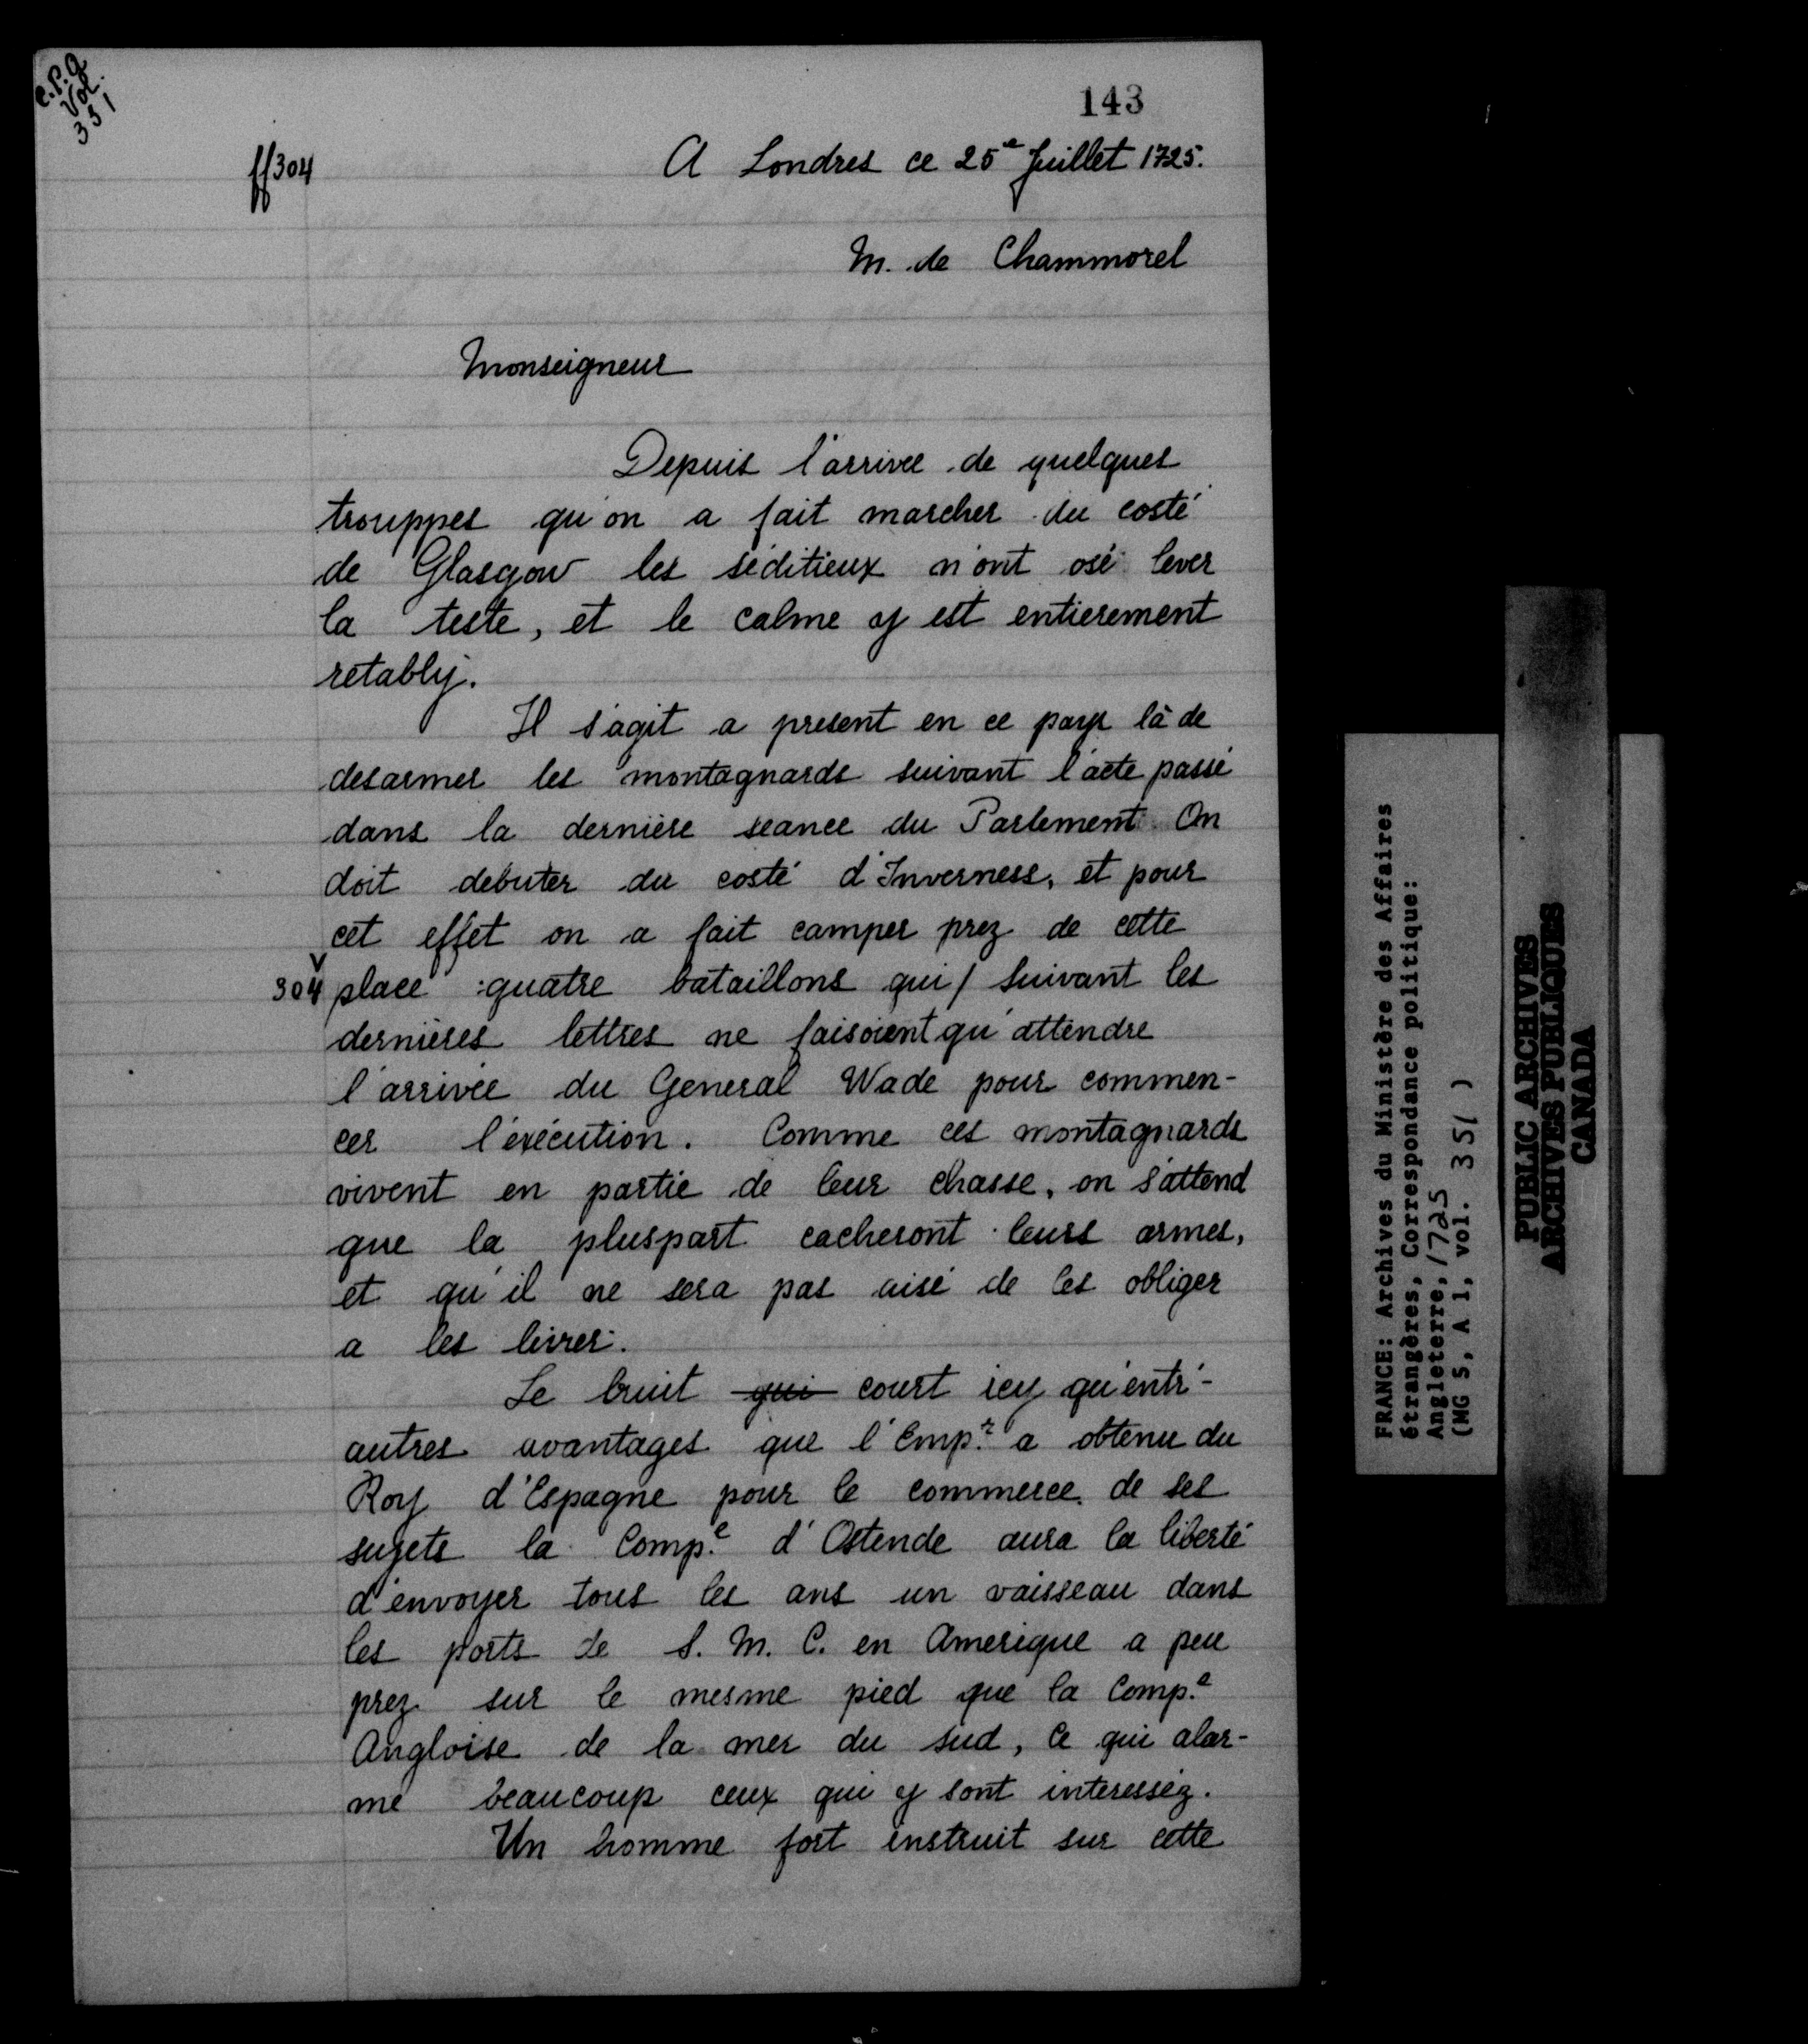 C.P.A
Vol.
351
143
ff304
A Londres ce 25e Juillet 1725.
M. de Chammorel
Monseigneur
Depuis l'arrivée de quelques
trouppes qu'on a fait marcher du costé
de Glasgow les séditieux n'ont osé lever
la teste, et le calme y est entierement
retably.
Il s'agit a present en ce pays là de
desarmer les montagnards suivant l'acte passé
dans la dernière seance du Parlement. On
doit debuter du costé d'Inverness, et pour
cet effet on a fait camper prez de cette
304 v place quatre bataillons qui / suivant les
dernières lettres ne faisoient qu'attendre
l'arrivée du General Wade pour commen-
cer l'exécution. Comme ces montagnards
vivent en partie de leur chasse, on s'attend
que la pluspart cacheront leurs armes,
et qu'il ne sera pas aisé de les obliger
a les livrer.
Le bruit qui court icy qu'entr'-
autres avantages que l'Emp.r a obtenu du
Roy d'Espagne pour le commerce de ses
sujets la Comp.e d'Ostende aura la liberté
d'envoyer tous les ans un vaisseau dans
les ports de S. M. C. en Amerique a peu
prez sur le mesme pied que la Comp.e
Angloise de la mer du sud, ce qui alar-
me beaucoup ceux qui y sont interesséz.
Un homme fort instruit sur cette
FRANCE: Archives du Ministère des Affaires
étrangères, Correspondance politique:
Angleterre, 1725
(MG 5, A 1, vol. 351 )
PUBLIC ARCHIVES
ARCHIVES PUBLIQUES
CANADA